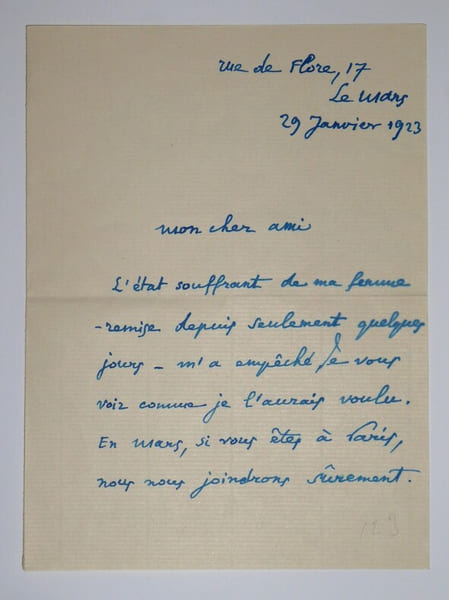 rue de Flore, 17
Le Mans
29 Janvier 1923
mon cher ami
L'état souffrant de ma femme
-remise depuis seulement quelques
jours - m'a empêché de vous
voir comme je l'aurais voulu.
En mars, si vous êtes à Paris,
nous nous joindrons sûrement.
123